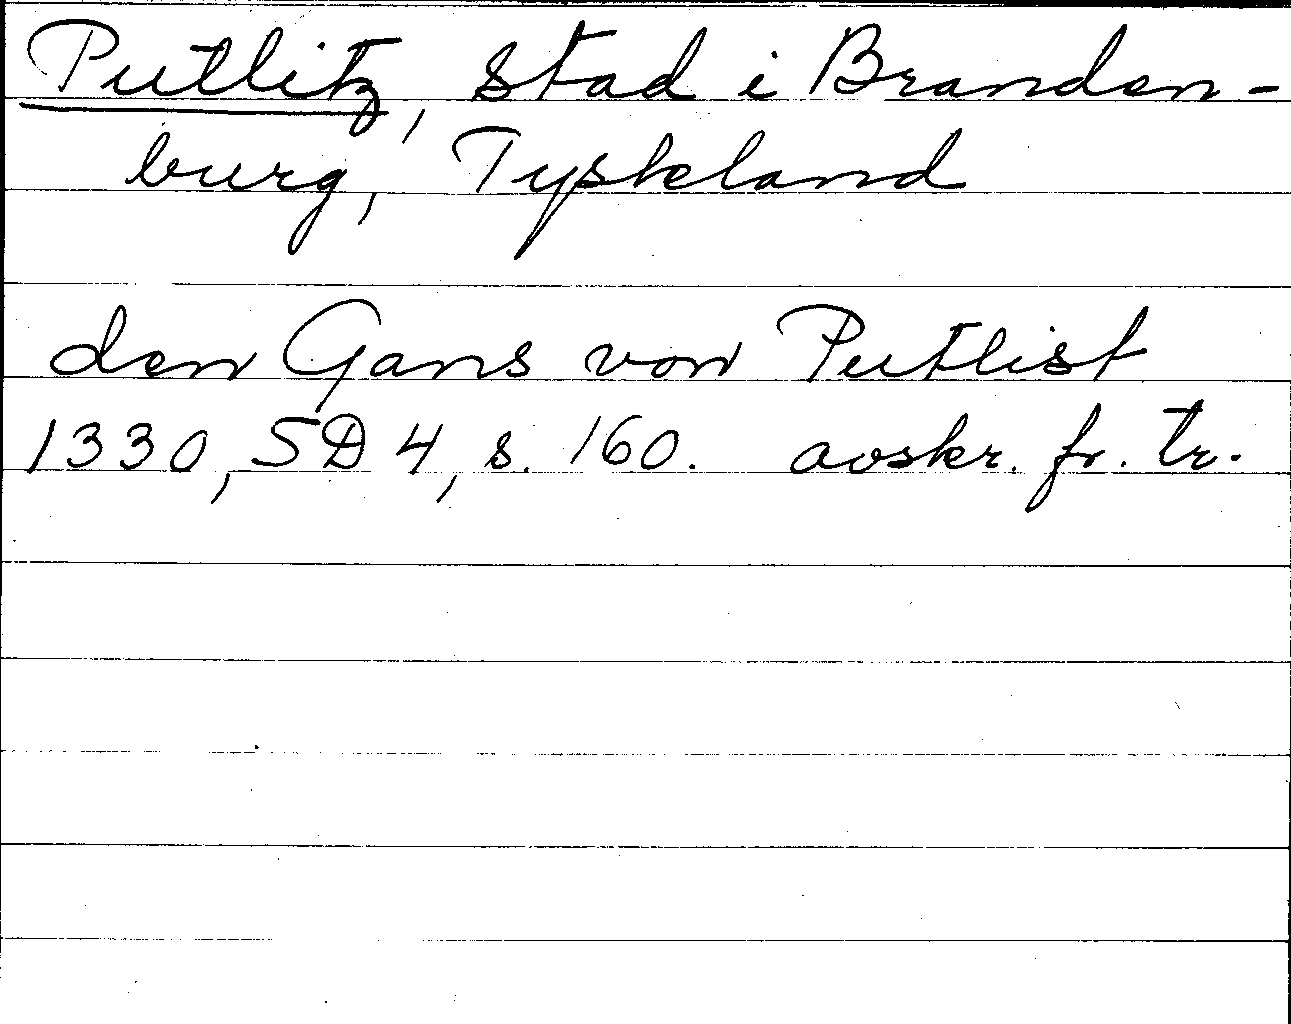 Putlitz, stad i Branden-
burg, Tyskland
den Gans von Putlist
1330, SD 4, s. 160. avskr. fr. tr.